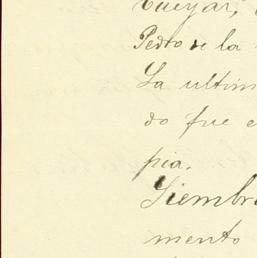 Cuellar,
Pedro de la
La ultim
do fue e
pia.
Siembr
mento